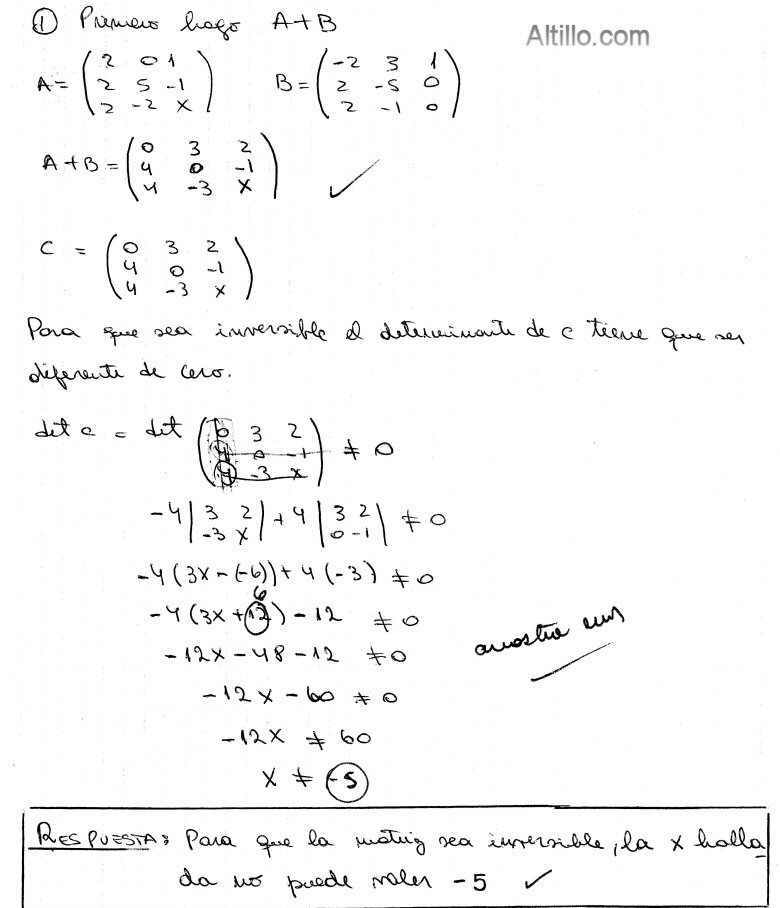 ① Primero hago A+B
Altillo.com
A = ( 2 0 1
2 5 -1
2 -2 x )
B = ( -2 3 1
2 -5 0
2 -1 0 )
A+B = ( 0 3 2
4 0 -1
4 -3 x ) ✓
C = ( 0 3 2
4 0 -1
4 -3 x )
Para que sea inversible el determinante de c tiene que ser
diferente de cero.
det c = det ( 0 3 2
4 0 -1
4 -3 x ) ≠ 0
-4 | 3 2
-3 x | + 4 | 3 2
0 -1 | ≠ 0
-4 (3x - (-6)) + 4 (-3) ≠ 0
6
-4 (3x + 12) - 12 ≠ 0
-12x - 48 - 12 ≠ 0
arrastra
-12x - 60 ≠ 0
-12x ≠ 60
x ≠ -5
RESPUESTA: Para que la matriz sea inversible, la x halla
da no puede valer -5 ✓